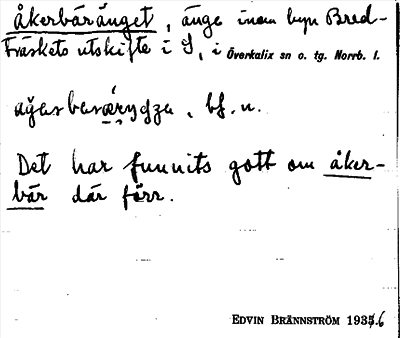 åkerbäränget, änge inom byn Bred-
träskets utskifte i S, i Överkalix sn o. tg. Norrb. l.
bf. n.
Det har funnits gott om åker-
bär där förr.
EDVIN BRÄNNSTRÖM 1936